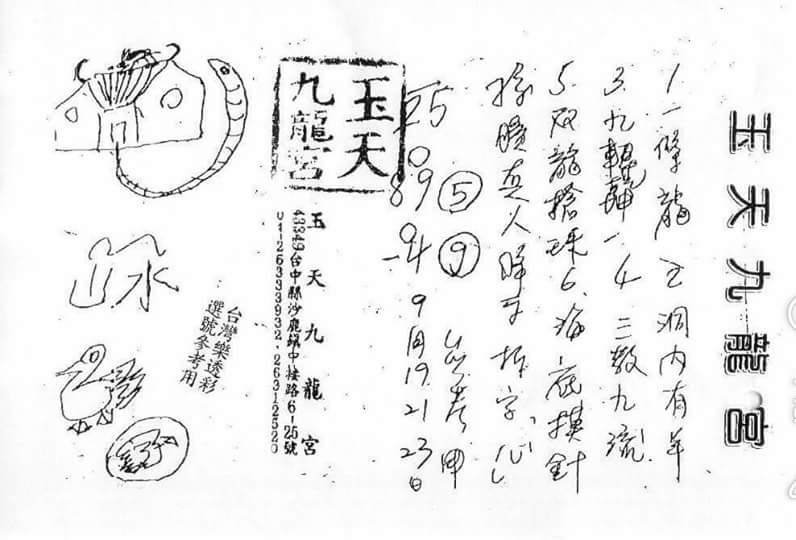 玉天九龍宮
1.一條龍 2.洞內有羊
3.九輾轉一 4.三教九流
5.双龍搶珠 6.海底摸針
降子拆字、心
參考用
9月19.21.23日
25
0
89 ⑤
94 ⑨
玉天九龍宮
玉天九龍宮
43349台中縣沙鹿鎮中棲路6-25號
04-26333932.26312520
台灣樂透彩
選號參考用
山水